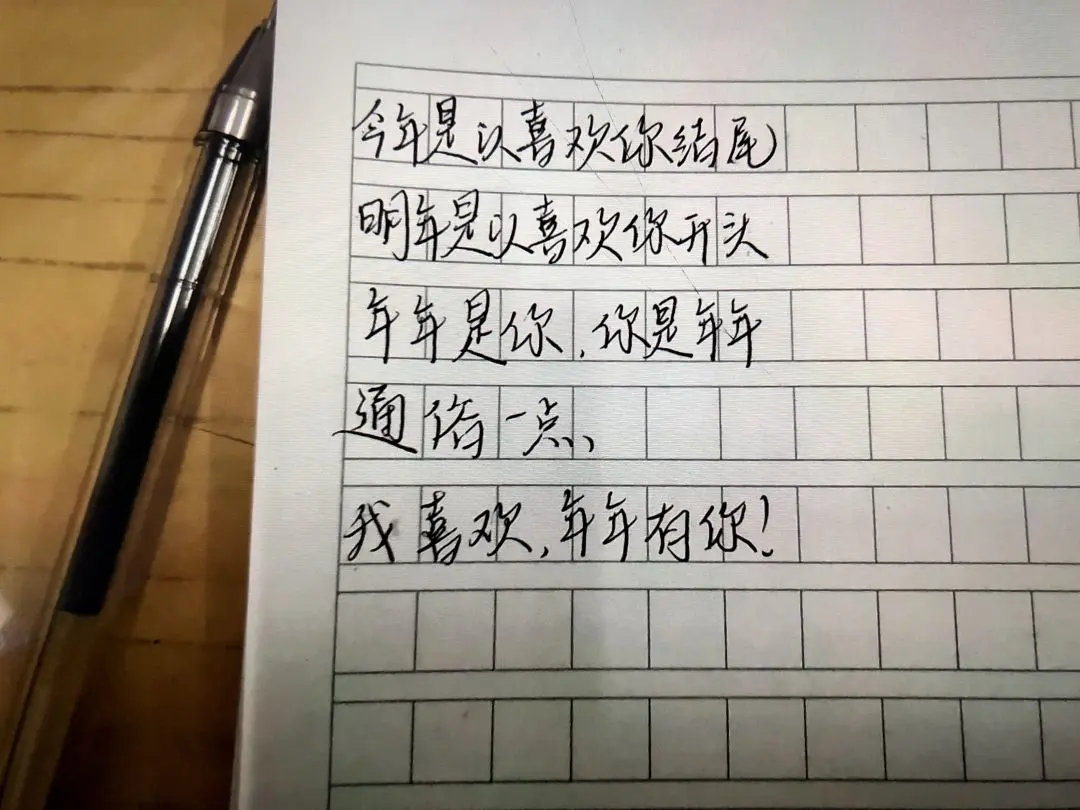 今年是以喜欢你结尾
明年是以喜欢你开头
年年是你,你是年年
通俗一点、
我喜欢,年年有你!